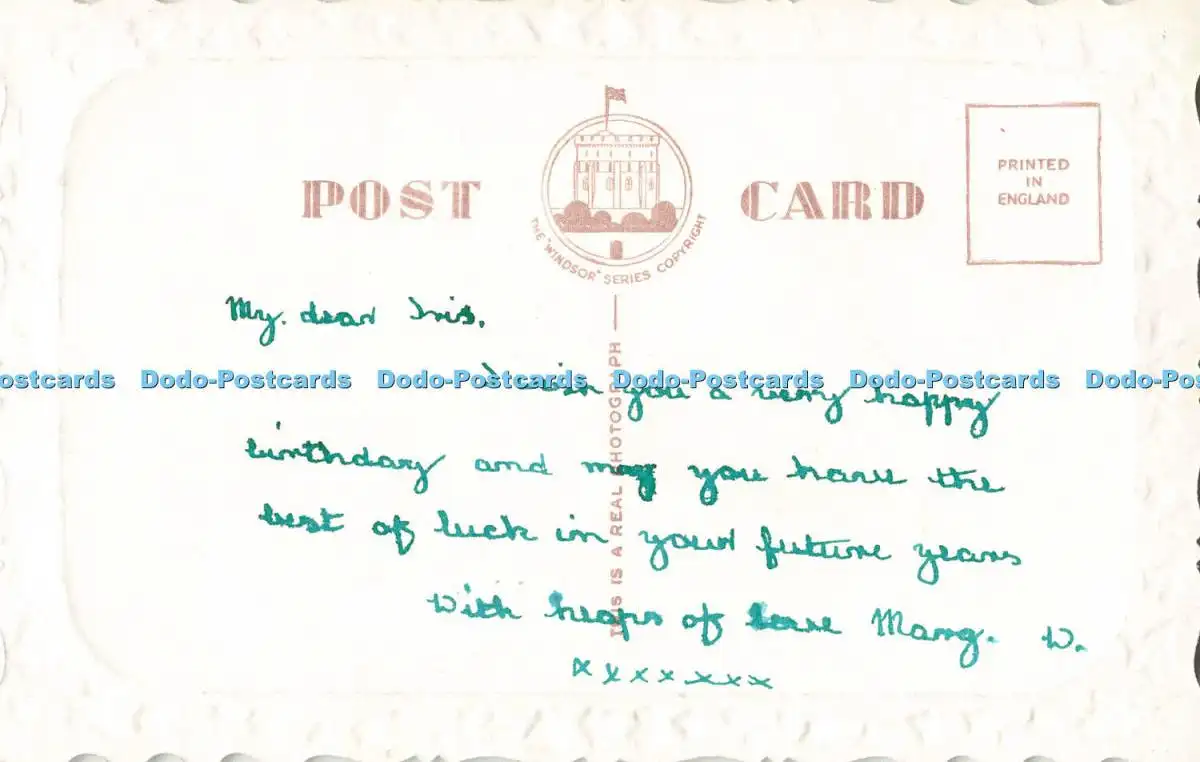 POST CARD
THE "WINDSOR" SERIES COPYRIGHT
PRINTED
IN
ENGLAND
THIS IS A REAL PHOTOGRAPH
My. dear Iris.
ostcards Dodo-Postcards Dodo-Postcards Dodo-Postcards Dodo-Postcards Dodo-Pos
I wish you a very happy
birthday and may you have the
best of luck in your future years
With heaps of love Marg. W.
x x x x x x x